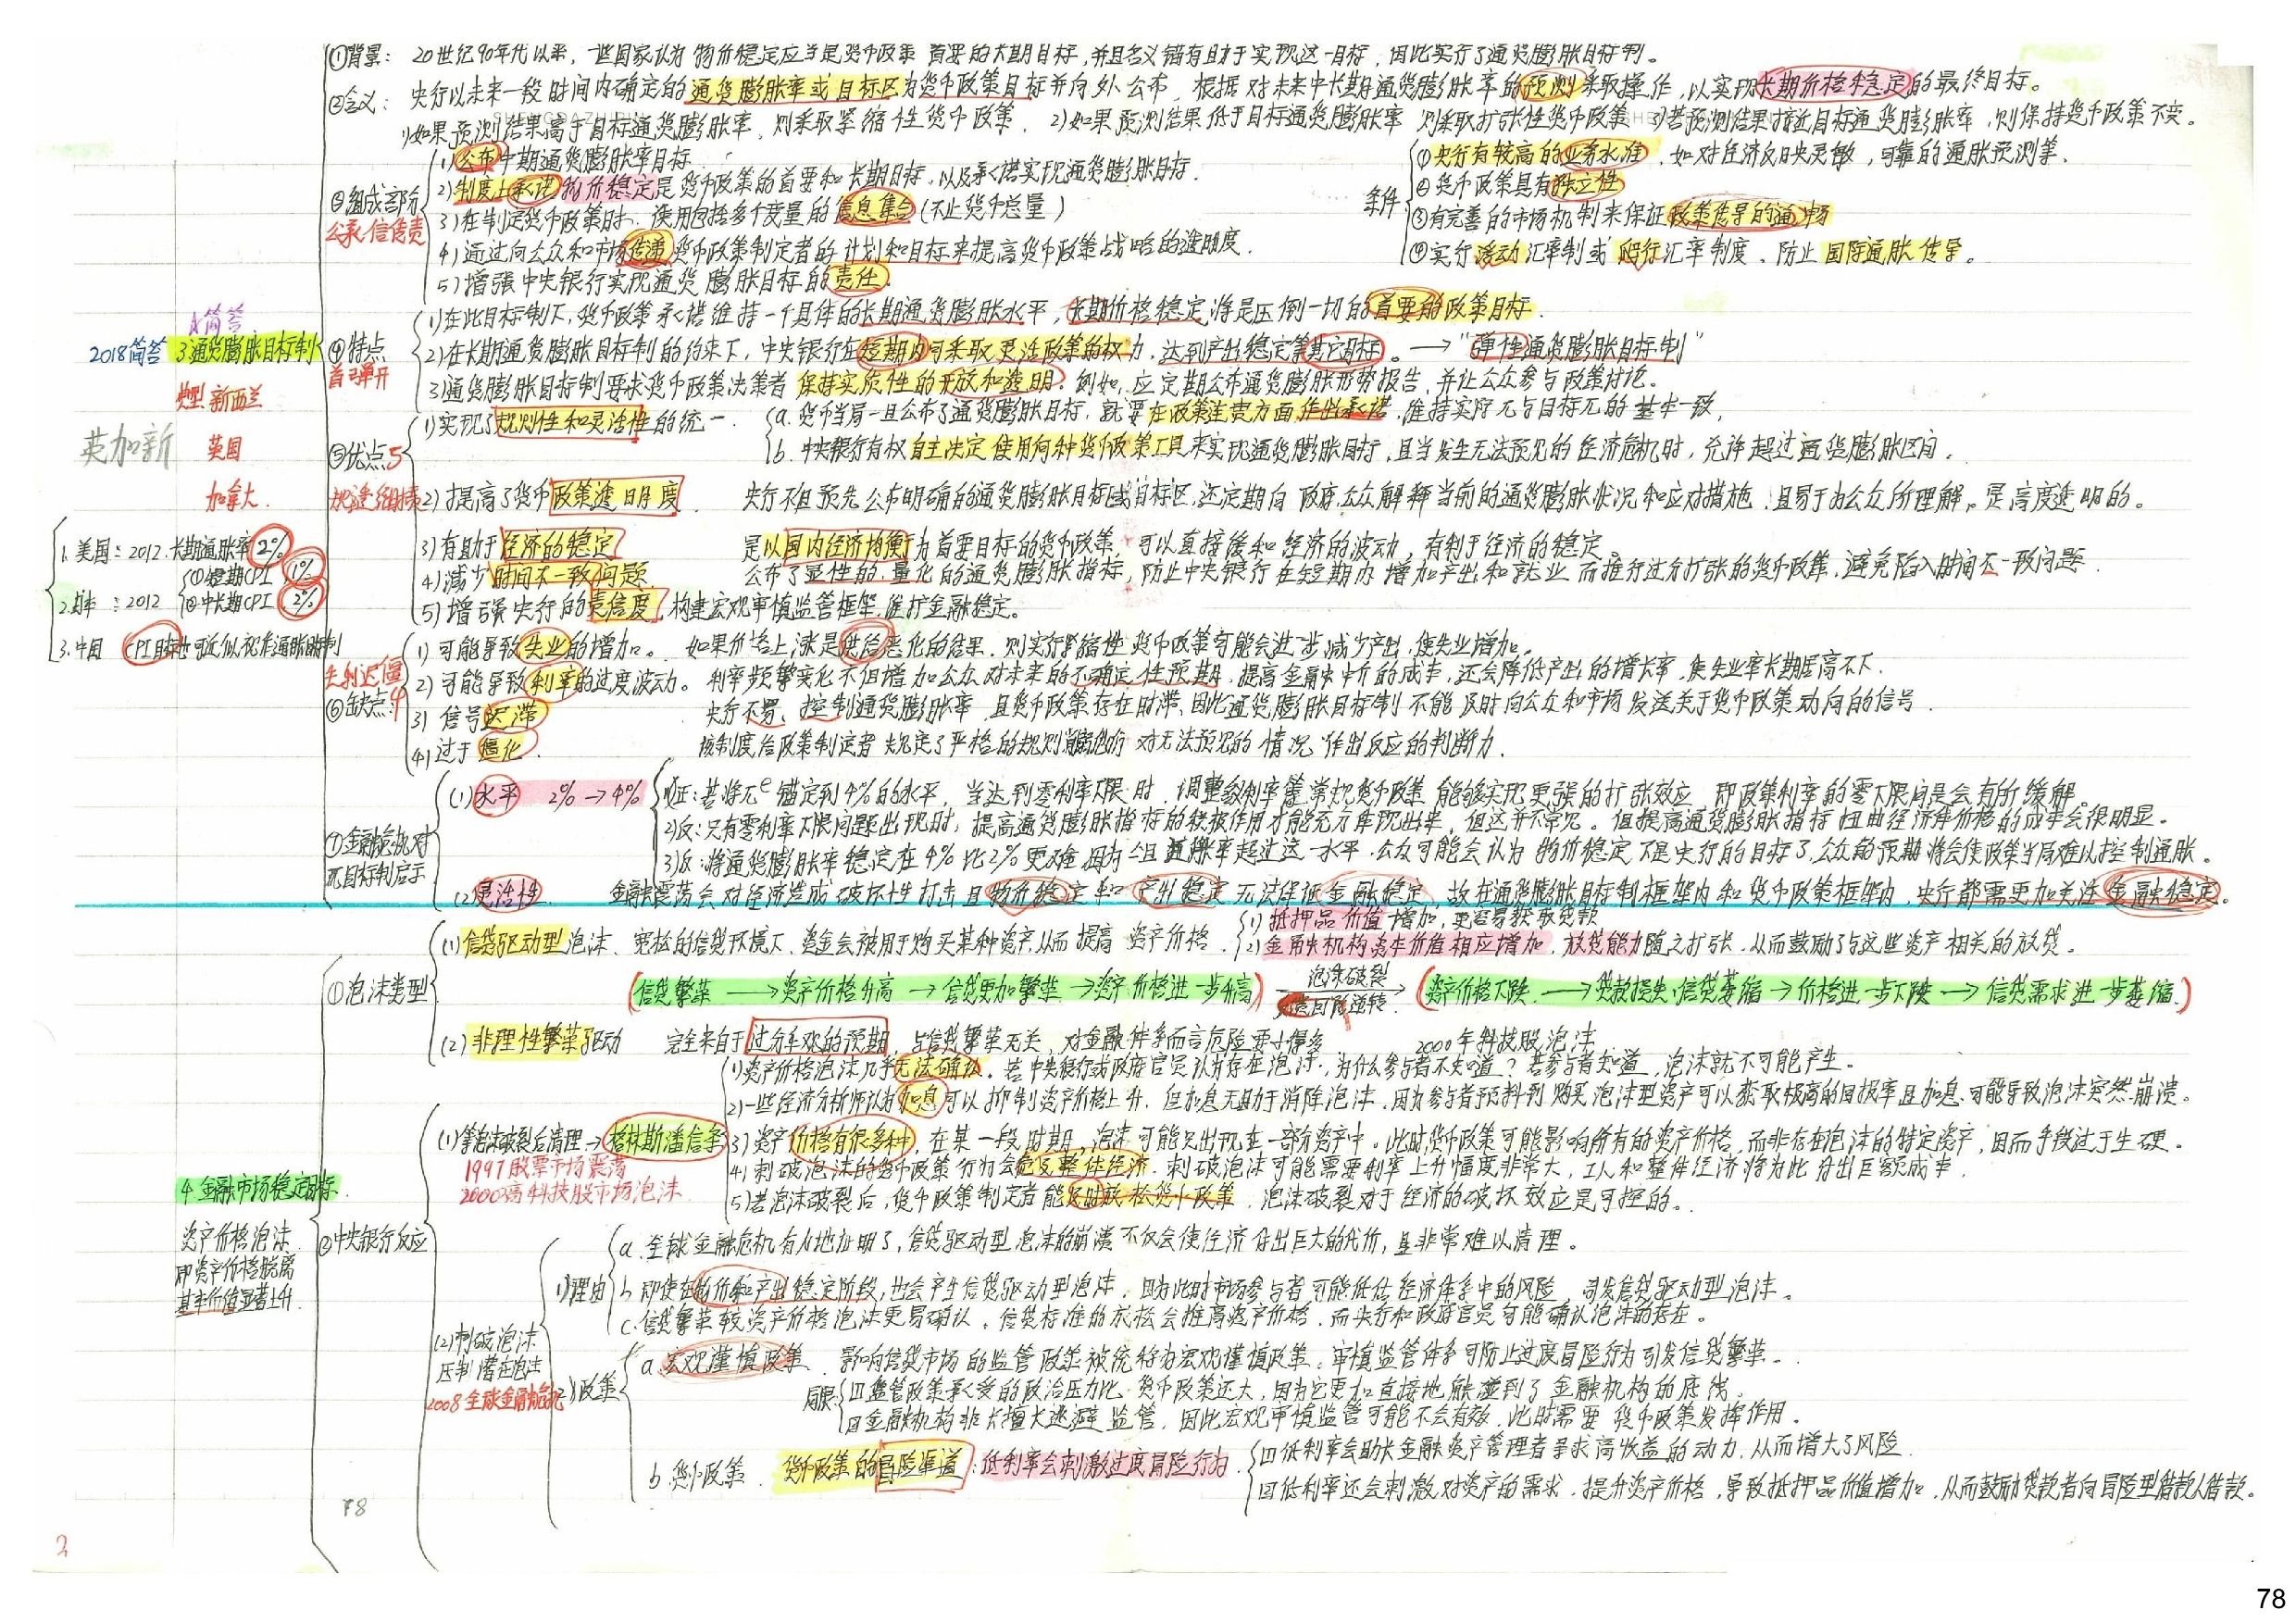 ①背景: 20世纪90年代以来,一些国家认为物价稳定应当是货币政策首要的长期目标,并且名义锚有助于实现这一目标,因此实行了通货膨胀目标制。
②含义: 央行以未来一段时间内确定的通货膨胀率或目标区为货币政策目标并向外公布,根据对未来中长期通货膨胀率的预测采取操作,以实现长期价格稳定的最终目标。
1)如果预测结果高于目标通货膨胀率,则采取紧缩性货币政策. 2)如果预测结果低于目标通货膨胀率 则采取扩张性货币政策 3)若预测结果接近目标通货膨胀率,则保持货币政策不变。
③组成部分
公承信传责
1)公布中期通货膨胀率目标
2)制度上承诺物价稳定是货币政策的首要和长期目标,以及承诺实现通货膨胀目标.
3)在制定货币政策时,使用包括多个变量的信息集合(不止货币总量)
4)通过向公众和市场传递货币政策制定者的计划和目标来提高货币政策战略的透明度.
5)增强中央银行实现通货膨胀目标的责任.
条件
①央行有较高的业务水准,如对经济反映灵敏,可靠的通胀预测等.
②货币政策具有独立性
③有完善的市场机制来保证政策传导的通畅
④实行浮动汇率制或爬行汇率制度、防止国际通胀传导。
A简答
2018简答 3.通货膨胀目标制
典型 新西兰
英国
加拿大.
英加新
④特点
首弹开
1)在此目标制下,货币政策承诺维持一个具体的长期通货膨胀水平,长期价格稳定将是压倒一切的首要的政策目标.
2)在长期通货膨胀目标制的约束下,中央银行在短期内可采取灵活政策的权力,达到产出稳定等其它目标。→“弹性通货膨胀目标制”
3)通货膨胀目标制要求货币政策决策者保持实质性的开放和透明.例如,应定期公布通货膨胀形势报告,并让公众参与政策讨论。
⑤优点5
1)实现了规则性和灵活性的统一.
a.货币当局一旦公布了通货膨胀目标,就要在政策连贯方面作出承诺,维持实际π与目标π的基本一致,
b.中央银行有权自主决定使用何种货币政策工具来实现通货膨胀目标,且当发生无法预见的经济危机时,允许超过通货膨胀区间.
2)提高了货币政策透明度. 央行不但预先公布明确的通货膨胀目标或目标区,还定期向政府公众解释当前的通货膨胀状况和应对措施,且易于为公众所理解。是高度透明的。
3)有助于经济的稳定 是以国内经济均衡为首要目标的货币政策,可以直接缓和经济的波动,有利于经济的稳定。
4)减少时间不一致问题 公布了显性的、量化的通货膨胀指标,防止中央银行在短期内增加产出和就业而推行过分扩张的货币政策,避免陷入时间不一致问题.
5)增强央行的责信度,构建宏观审慎监管框架,维护金融稳定。
1.美国:2012.长期通胀率2%
2.日本:2012 ①短期CPI 1% ②中长期CPI 2%
3.中国 CPI目标也可近似视作通胀目标制
失利迟僵
⑥缺点:4
1)可能导致失业的增加。 如果价格上涨是供给恶化的结果,则实行紧缩性货币政策可能会进一步减少产出,使失业增加。
2)可能导致利率的过度波动。 利率频繁变化不但增加公众对未来的不确定性预期,提高金融中介的成本,还会降低产出的增长率,使失业率长期居高不下.
3)信号迟滞 央行不易控制通货膨胀率,且货币政策存在时滞,因此通货膨胀目标制不能及时向公众和市场发送关于货币政策动向的信号.
4)过于僵化. 该制度给政策制定者规定了严格的规则 对无法预见的情况作出反应的判断力.
⑦金融危机对π目标制启示
(1)水平 2%→4%
1)正:若将πe锚定到4%的水平,当达到零利率下限时,调整利率等常规货币政策能够实现更强的扩张效应,即政策利率的零下限问题会有所缓解。
2)反:只有零利率下限问题出现时,提高通货膨胀指标的积极作用才能充分体现出来,但这并不常见。但提高通货膨胀指标扭曲经济体价格的成本会很明显。
3)反:将通货膨胀率稳定在4%比2%更难,因为一旦通胀率超过这一水平,公众可能会认为物价稳定不是央行的目标了,公众的预期将会使政策当局难以控制通胀。
(2)灵活性. 金融震荡会对经济造成破坏性打击且物价稳定和产出稳定无法保证金融稳定,故在通货膨胀目标制框架内和货币政策框架内,央行都需更加关注金融稳定。
4.金融市场稳定目标.
资产价格泡沫
即资产价格脱离
基本价值显著上升.
①泡沫类型
(1)信贷驱动型泡沫、宽松的信贷环境下,资金会被用于购买某种资产从而提高资产价格.
1)抵押品价值增加,更容易获取贷款
2)金融机构资本价值相应增加,放贷能力随之扩张,从而鼓励了与这些资产相关的放贷。
(信贷繁荣→资产价格升高→信贷更加繁荣→资产价格进一步升高) 泡沫破裂 逆转 (资产价格下跌→贷款损失,信贷萎缩→价格进一步下跌→信贷需求进一步萎缩.)
(2)非理性繁荣驱动 完全来自于过分乐观的预期,与信贷繁荣无关,对金融体系而言危险要小得多 2000年科技股泡沫.
②中央银行反应
(1)等泡沫破裂后清理→格林斯潘信条
1997股票市场震荡
2000高科技股市场泡沫
1)资产价格泡沫几乎无法确认。若中央银行或政府官员认为存在泡沫,为什么参与者不知道?若参与者知道,泡沫就不可能产生。
2)一些经济分析师认为加息可以抑制资产价格上升,但加息无助于消除泡沫,因为参与者预料到购买泡沫型资产可以获取极高的回报率且加息可能导致泡沫突然崩溃。
3)资产价格有很多种,在某一段时期,泡沫可能只出现在一部分资产中。此时货币政策可能影响所有的资产价格,而非存在泡沫的特定资产,因而手段过于生硬。
4)刺破泡沫的货币政策行为会危及整体经济,刺破泡沫可能需要利率上升幅度非常大,工人和整体经济将为此付出巨额成本.
5)若泡沫破裂后,货币政策制定者能及时放松货币政策,泡沫破裂对于经济的破坏效应是可控的。
(2)刺破泡沫
压制潜在泡沫
2008全球金融危机
1)理由
a.全球金融危机有力地证明了,信贷驱动型泡沫的崩溃不仅会使经济付出巨大的代价,且非常难以清理。
b.即使在物价和产出稳定阶段,也会产生信贷驱动型泡沫,因为此时市场参与者可能低估经济体系中的风险,引发信贷驱动型泡沫。
c.信贷繁荣较资产价格泡沫更易确认。信贷标准的放松会推高资产价格,而央行和政府官员可能确认泡沫的存在。
2)政策
a.宏观谨慎政策. 影响信贷市场的监管政策被统称为宏观谨慎政策,审慎监管体系可防止过度冒险行为引发信贷繁荣.
局限
[1]监管政策承受的政治压力比货币政策还大,因为它更加直接地触碰到了金融机构的底线.
[2]金融机构非常擅长逃避监管,因此宏观审慎监管可能不会有效,此时需要货币政策发挥作用。
b.货币政策. 货币政策的冒险渠道:低利率会刺激过度冒险行为
[1]低利率会助长金融资产管理者寻求高收益的动力,从而增大了风险.
[2]低利率还会刺激对资产的需求,提升资产价格,导致抵押品价值增加,从而鼓励贷款者向冒险型借款人借款。
78
2
78